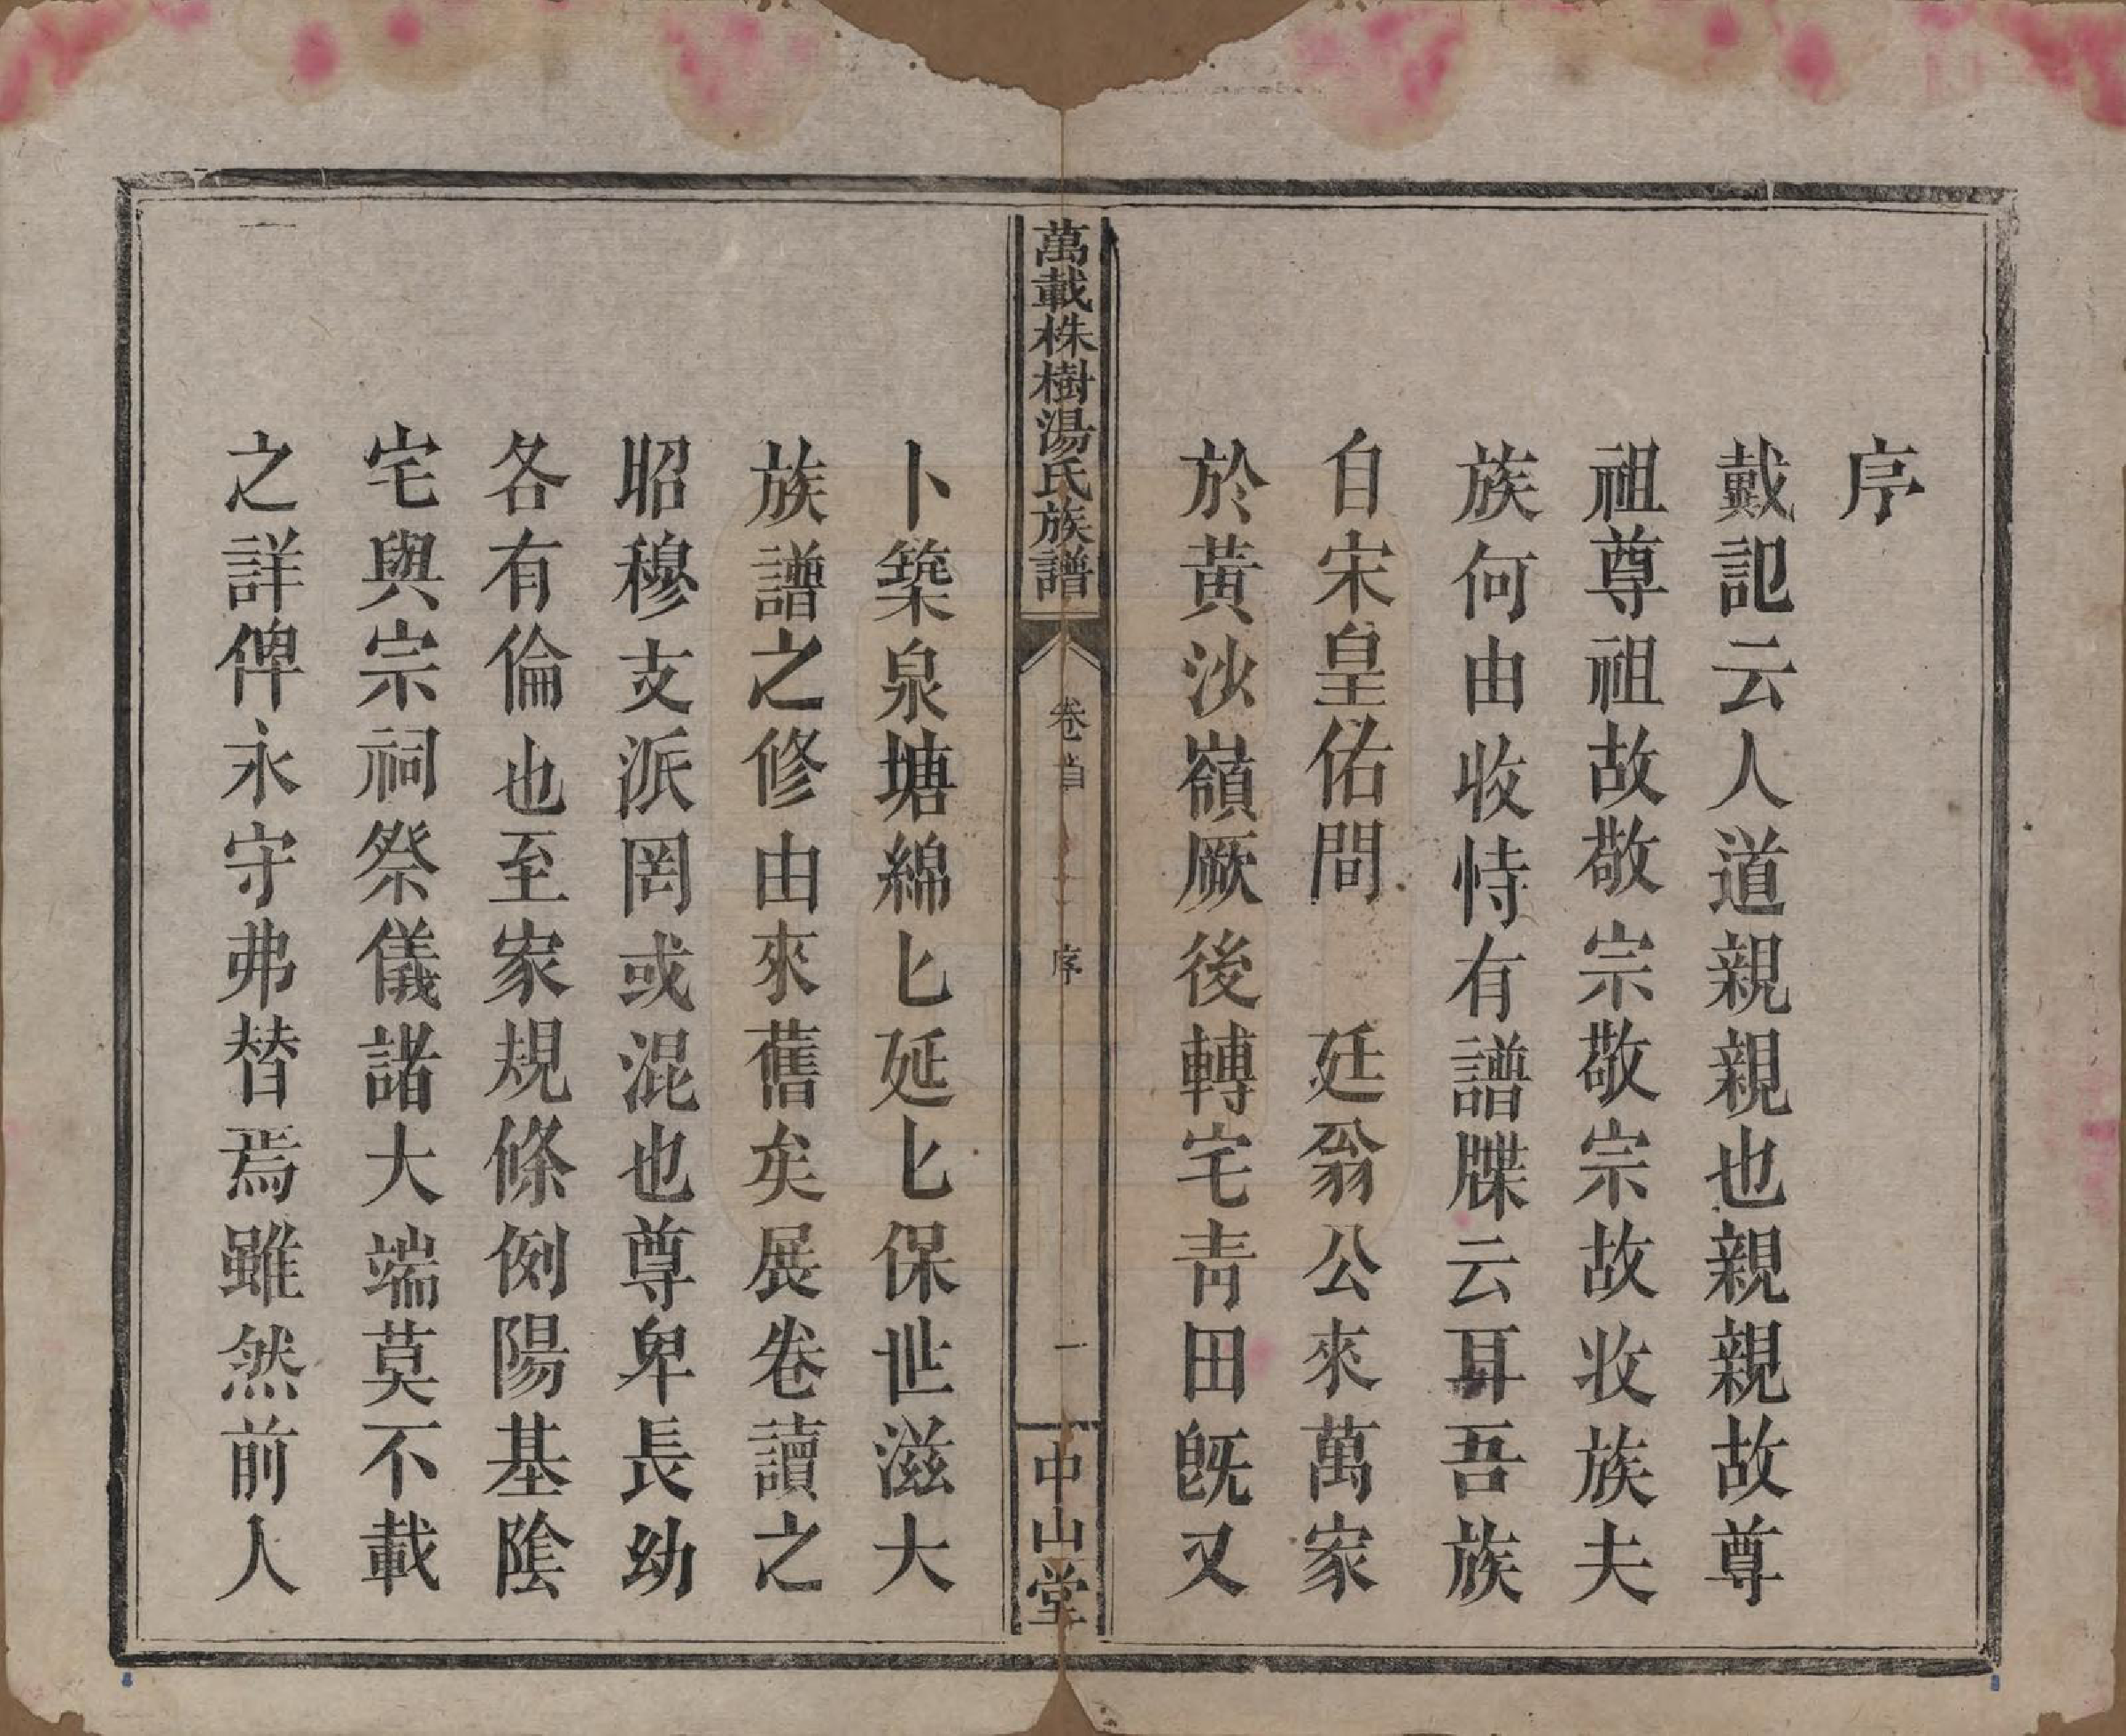 序
戴記云人道親親也親親故尊
祖尊祖故敬宗敬宗故收族夫
族何由收恃有譜牒云耳吾族
自宋皇佑間　廷翁公來萬家
於黃沙嶺厥後轉宅青田旣又
萬載株樹湯氏族譜
卷首
序
一
中山堂
卜築泉塘綿匕延匕保世滋大
族譜之修由來舊矣展卷讀之
昭穆支派罔或混也尊卑長幼
各有倫也至家規條例陽基陰
宅與宗祠祭儀諸大端莫不載
之詳俾永守弗替焉雖然前人